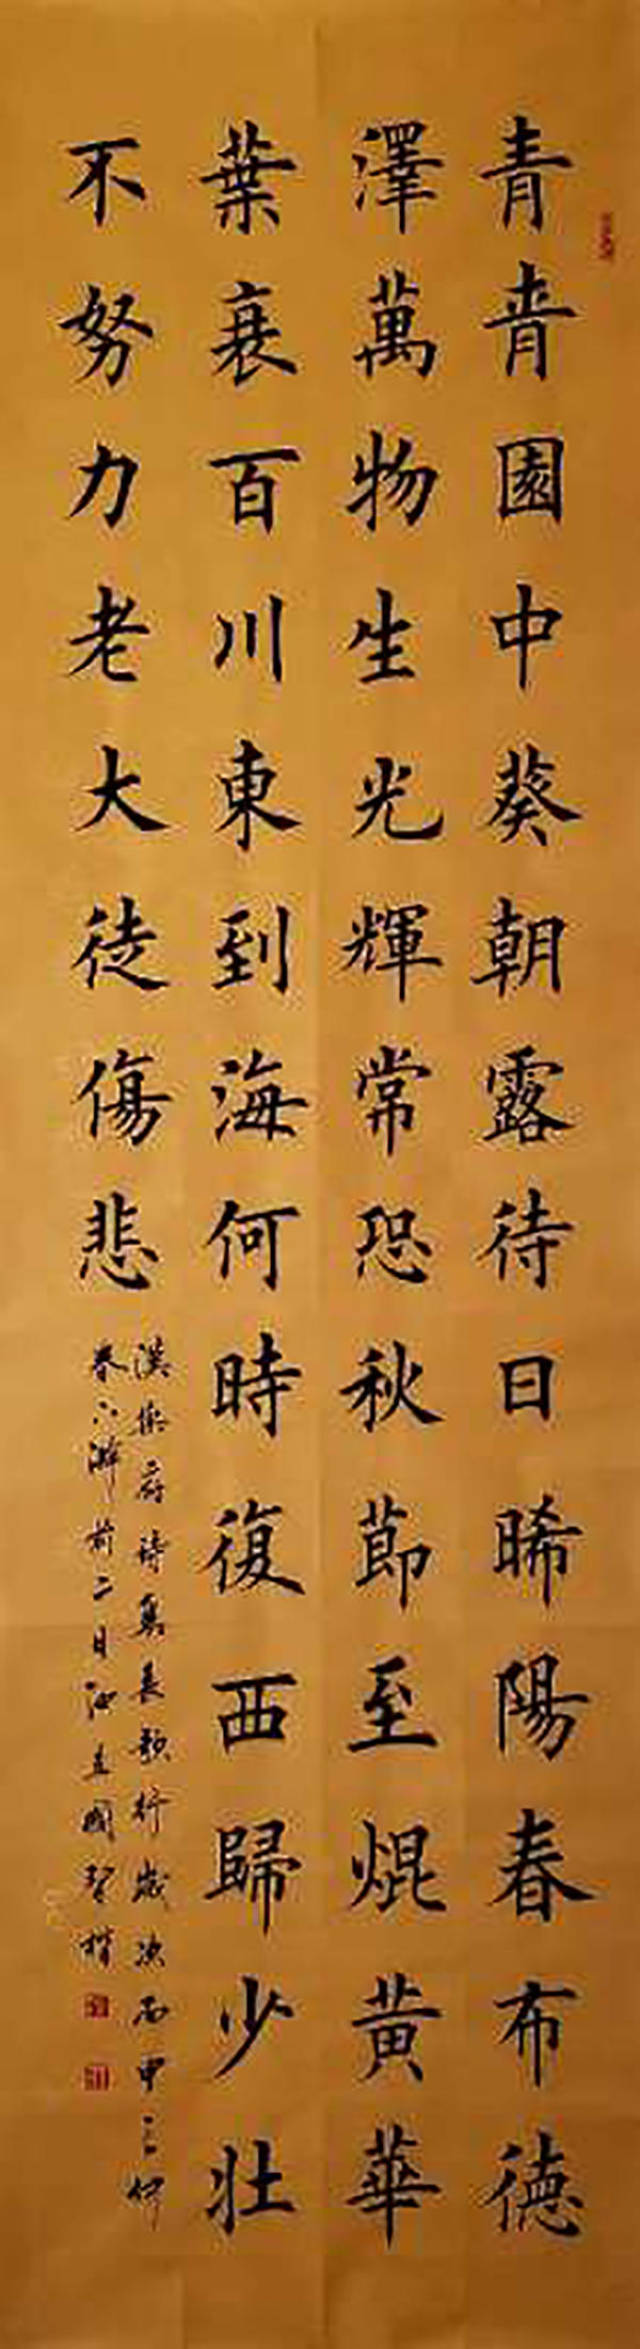 青青園中葵朝露待日晞陽春布德
澤萬物生光輝常恐秋節至焜黃華
葉衰百川東到海何時復西歸少壯
不努力老大徒傷悲
漢樂府詩集長歌行歲次丙申之仲
春下澣前二日